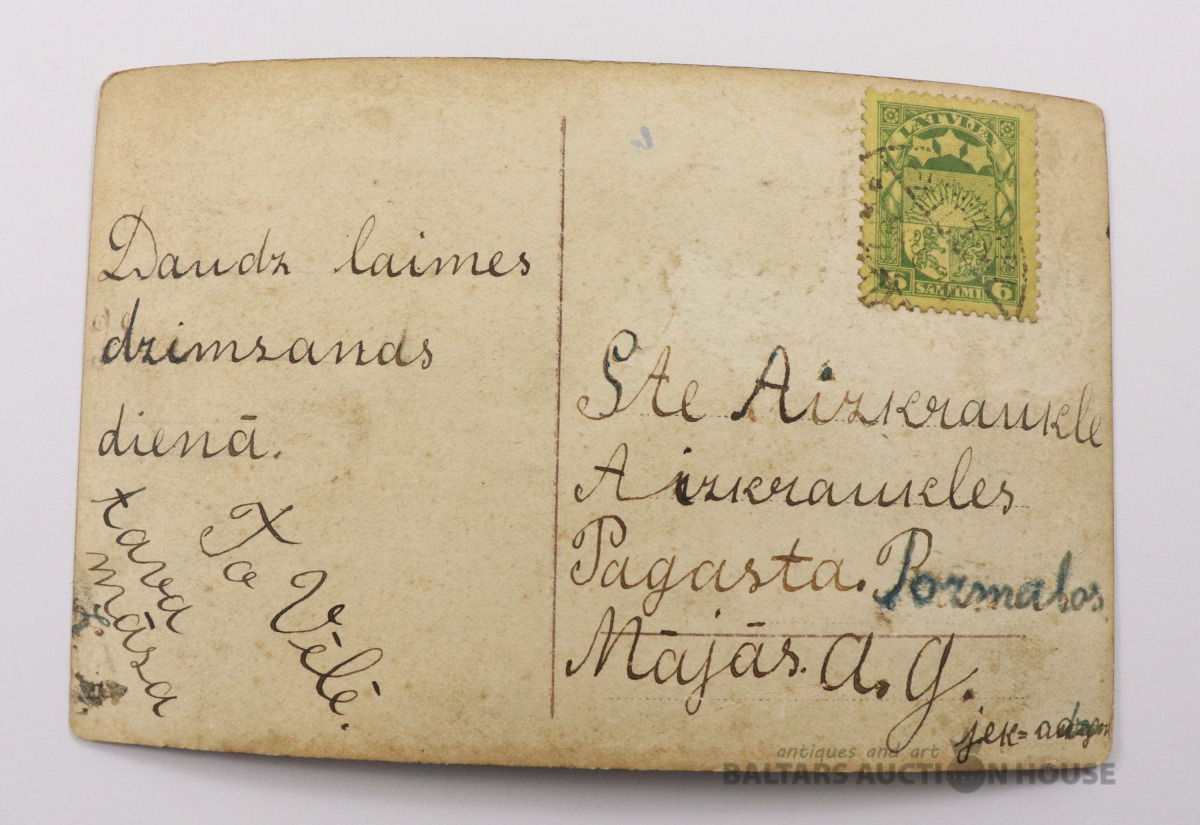 Daudz laimes
dzimsanas
dienā.
To Vēlē.
tava
māsa
LATVIJA
6 SANTIMI 6
Ste Aizkraukle
Aizkraukles
Pagasta. Pormalos
Mājās. A. G.
jek=
antiques and art
BALTARS AUCTION HOUSE